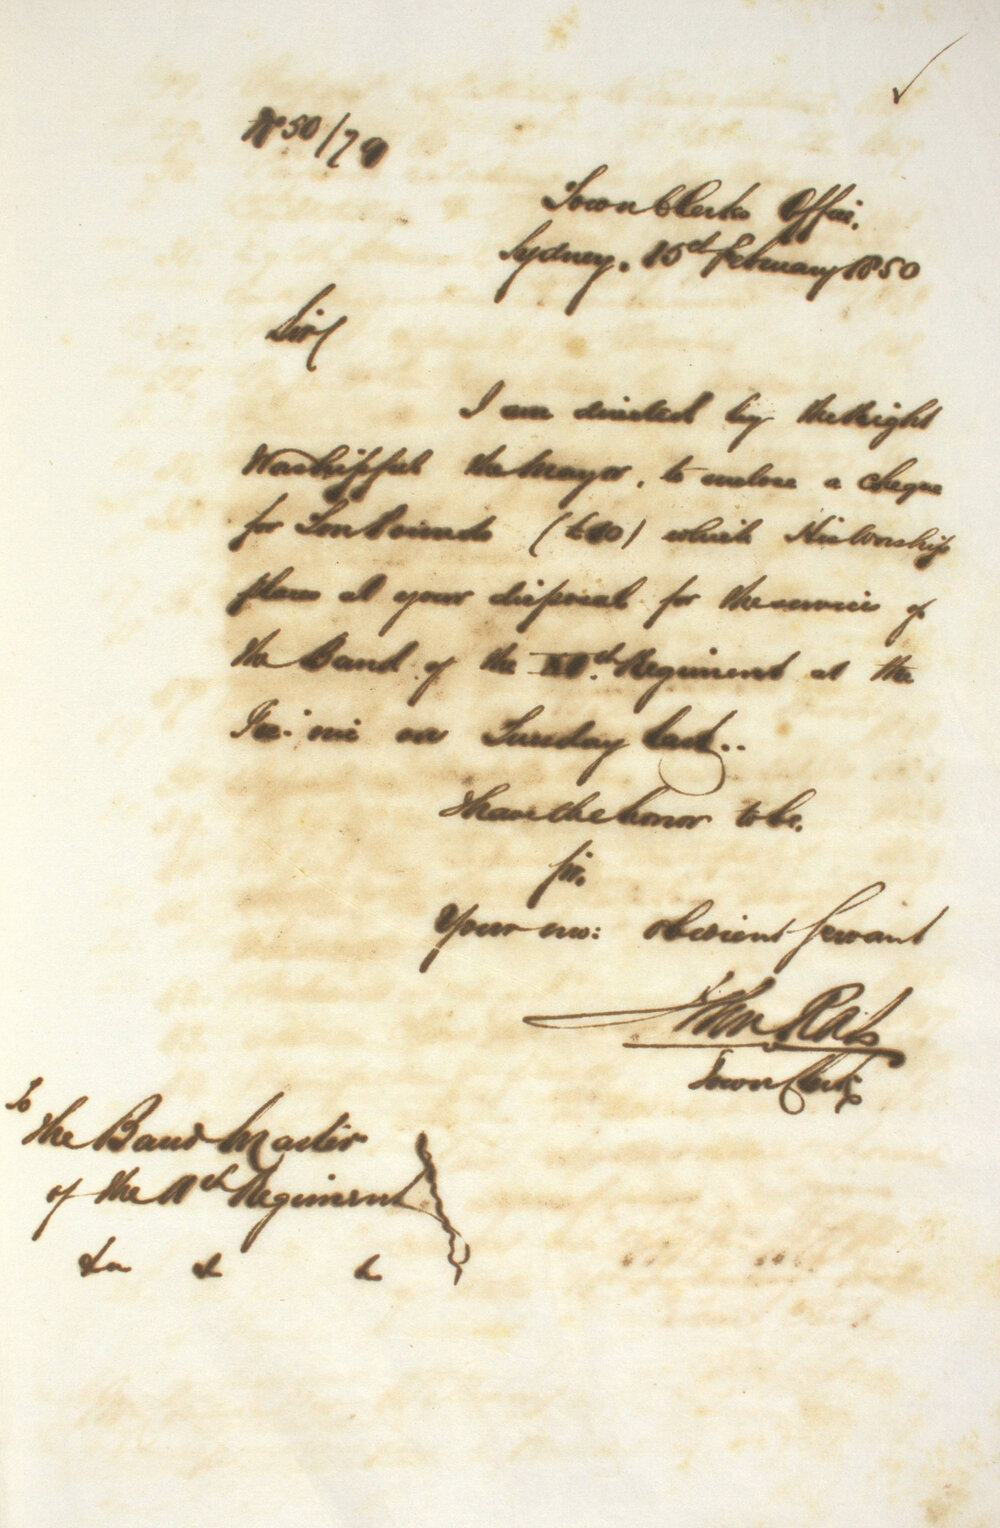 No 50/79
Town Clerks Office.
Sydney. 15th February 1850
Sir
I am directed by the Right
Worshipful the Mayor, to enclose a cheque
for Ten Pounds (£10) which His Worship
places at your disposal for the services of
the Band of the 11th Regiment at the
on Tuesday last..
I have the honor to be.
Sir.
Your mo: obedient Servant
John Rae
Town Clerk
To
The Band Master
of the 11th Regiment
&c &c &c